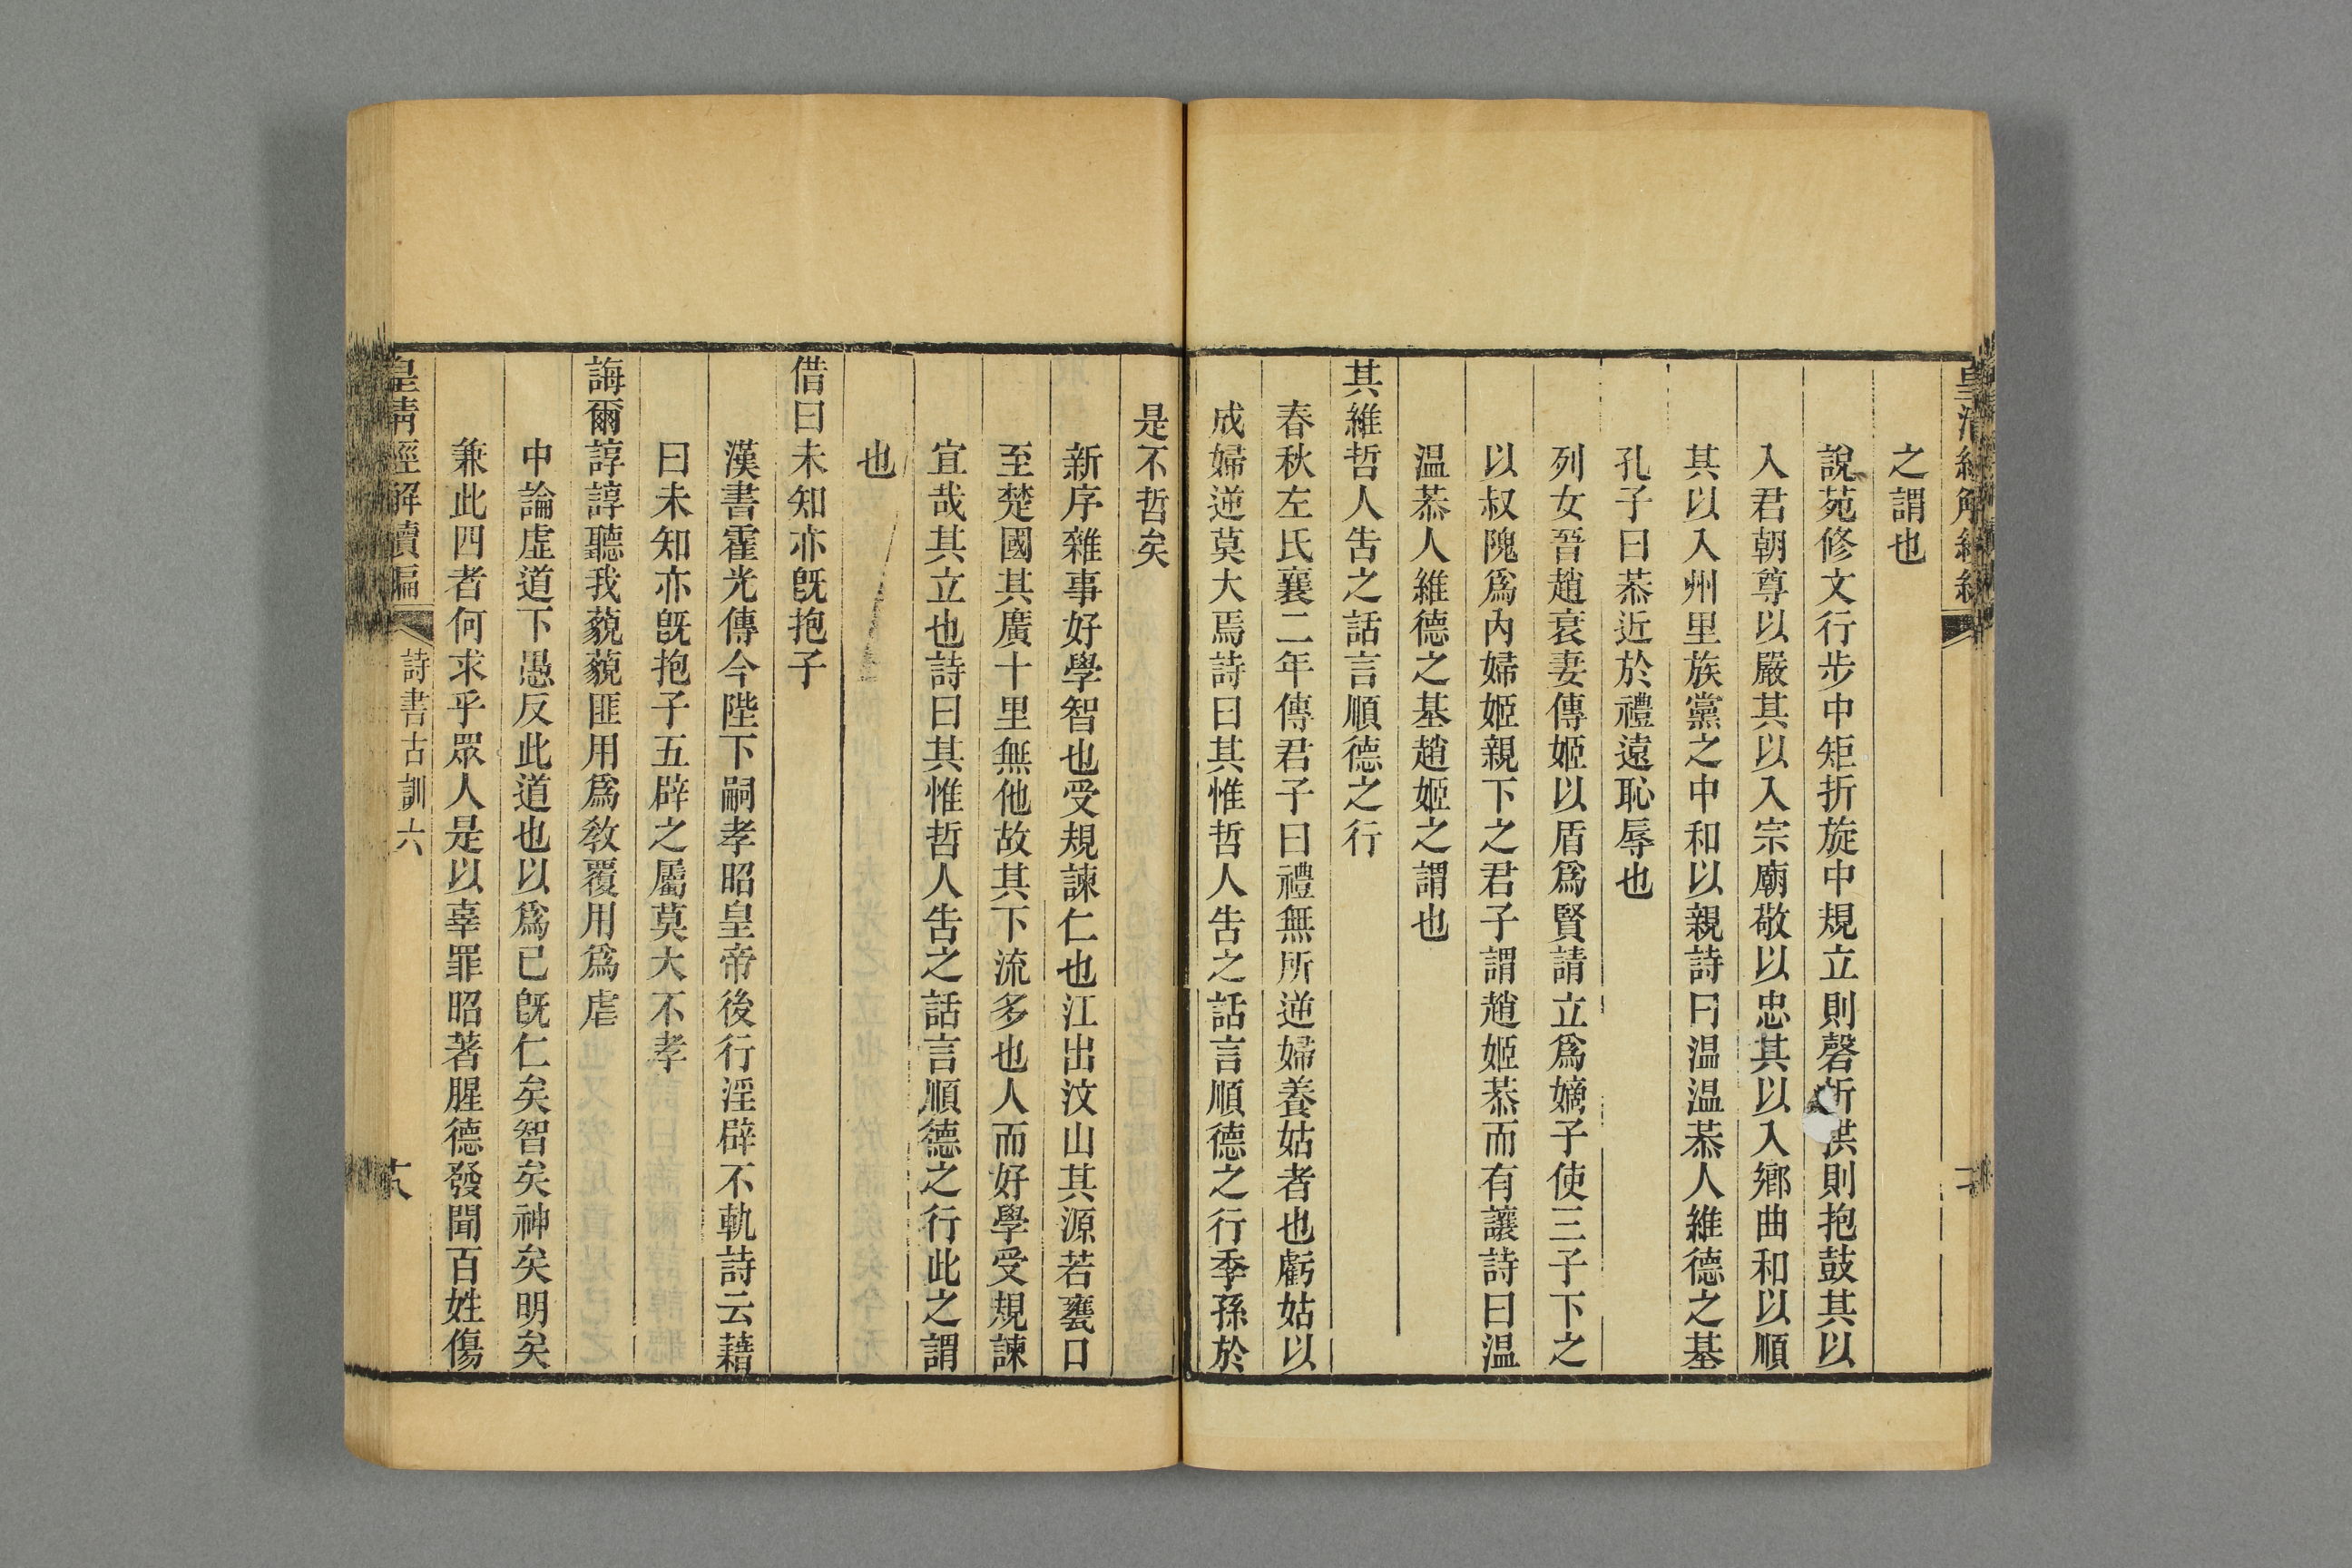 皇清經解續編
之謂也
說苑修文行步中矩折旋中規立則磬折拱則抱鼓其以
入君朝尊以嚴其以入宗廟敬以忠其以入鄉曲和以順
其以入州里族黨之中和以親詩曰温温恭人維德之基
孔子曰恭近於禮遠恥辱也
列女晉趙衰妻傳姬以盾爲賢請立爲嫡子使三子下之
以叔隗爲內婦姬親下之君子謂趙姬恭而有讓詩曰温
温恭人維德之基趙姬之謂也
其維哲人告之話言順德之行
春秋左氏襄二年傳君子曰禮無所逆婦養姑者也虧姑以
成婦逆莫大焉詩曰其惟哲人告之話言順德之行季孫於
是不哲矣
新序雜事好學智也受規諫仁也江出汶山其源若甕口
至楚國其廣十里無他故其下流多也人而好學受規諫
宜哉其立也詩曰其惟哲人告之話言順德之行此之謂
也
借曰未知亦旣抱子
漢書霍光傳今陛下嗣孝昭皇帝後行淫辟不軌詩云藉
曰未知亦旣抱子五辟之屬莫大不孝
誨爾諄諄聽我藐藐匪用爲敎覆用爲虐
中論虛道下愚反此道也以爲已旣仁矣智矣神矣明矣
兼此四者何求乎眾人是以辜罪昭著腥德發聞百姓傷
皇清經解續編 詩書古訓六